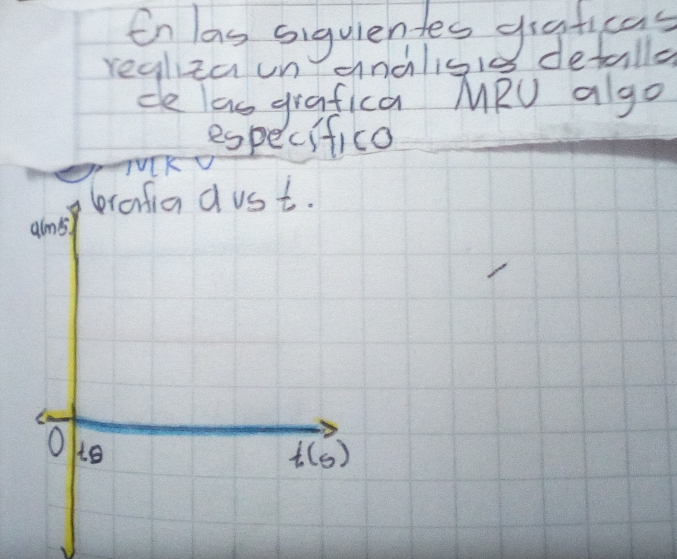 En las siguientes graficas
realiza un análisis detalla
de las grafica MRU algo
específico
MRU
Grafia a vs t.
0 to
t(s)